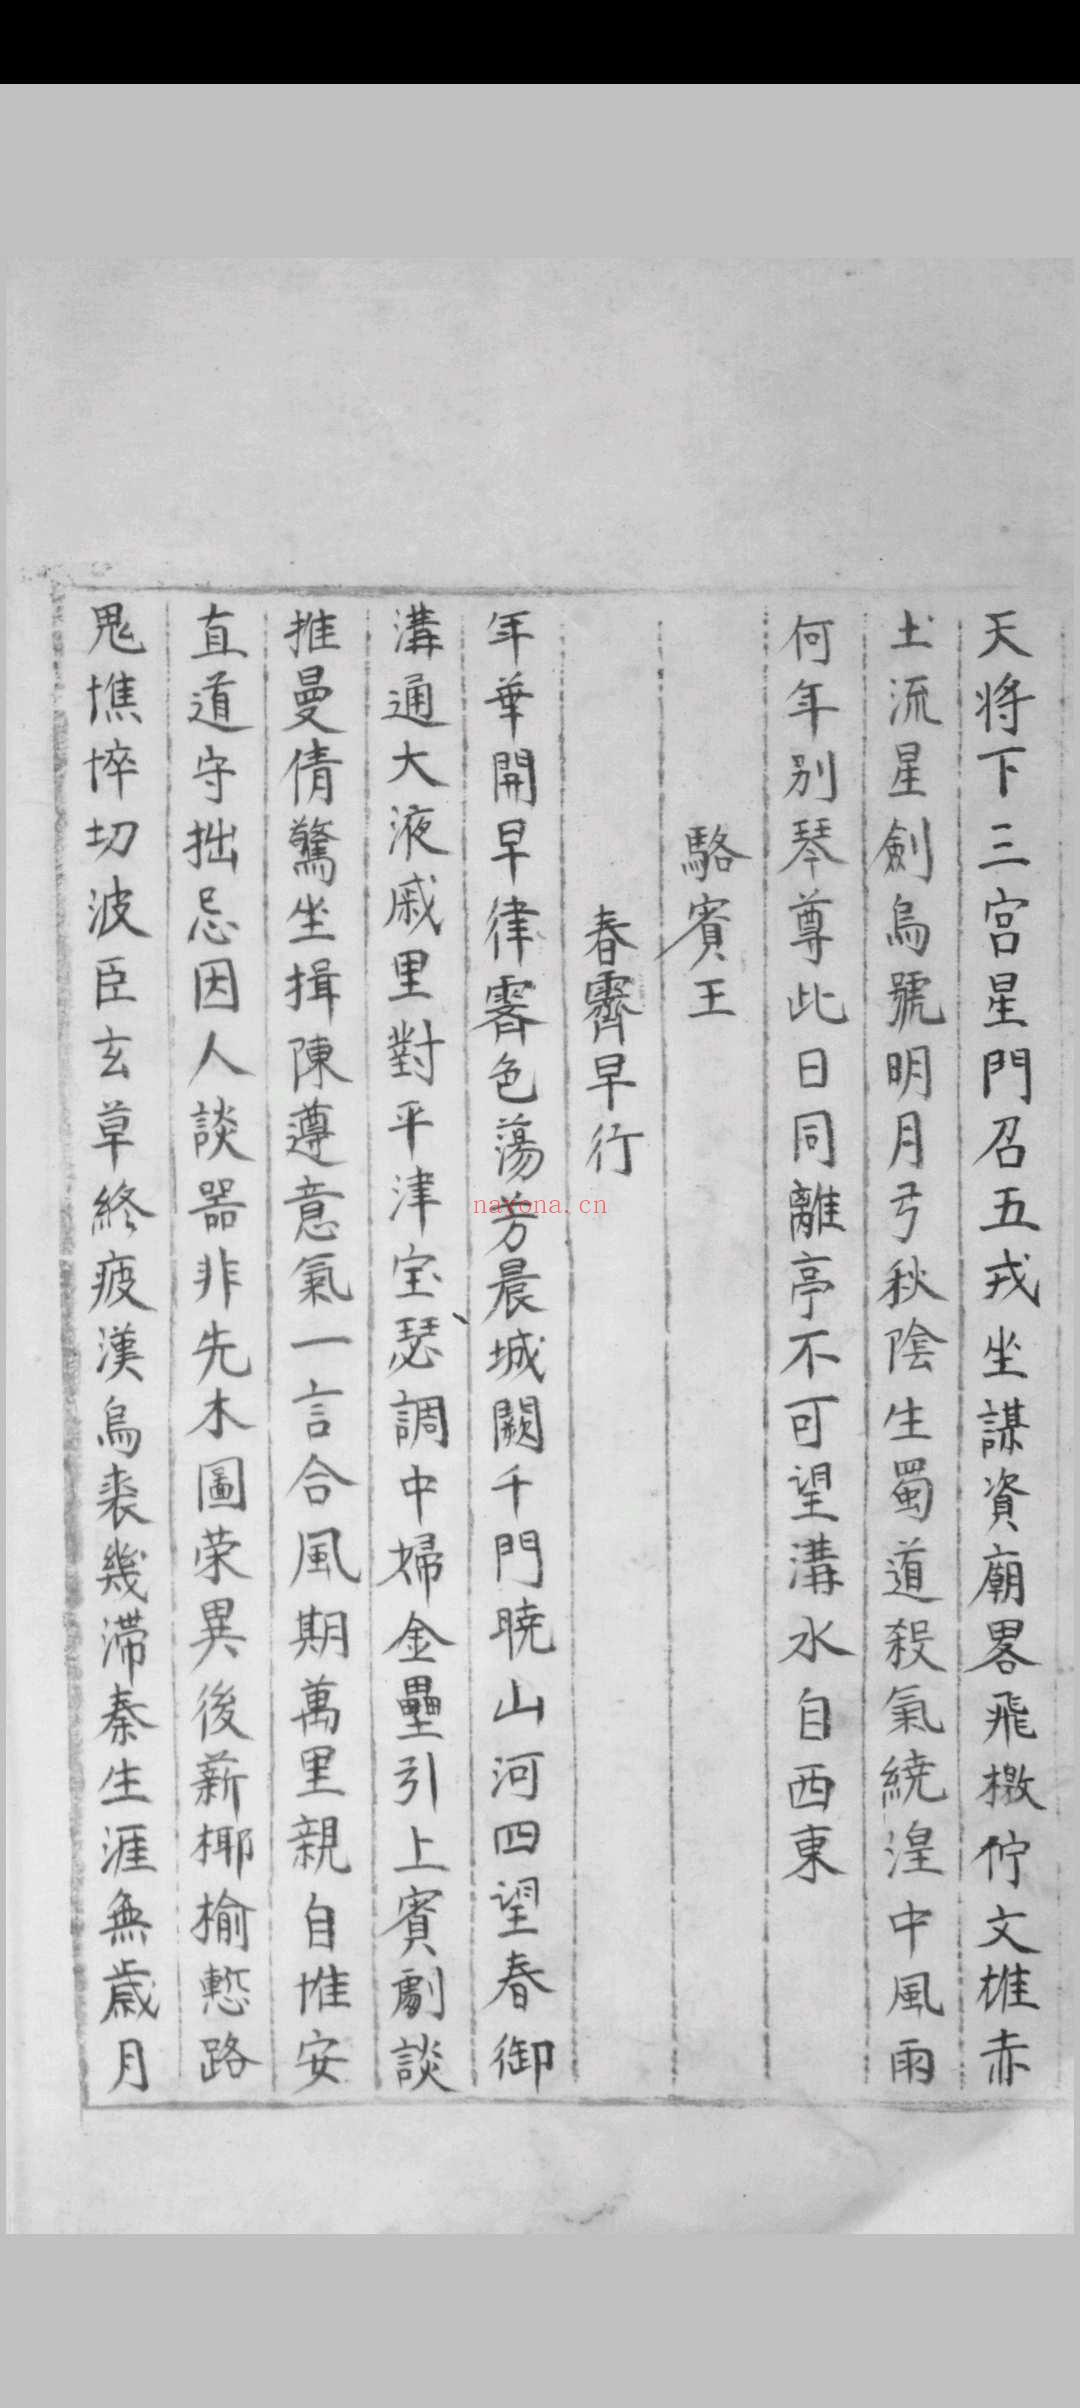 天将下三宫星門召五戎坐謀資廟畧飛檄佇文雄赤
土流星劍烏號明月弓秋陰生蜀道殺氣繞湟中風雨
何年别琴尊此日同離亭不可望溝水自西東
駱賓王
春霽早行
年華開早律霽色蕩芳晨城闕千門曉山河四望春御
溝通大液戚里對平津宝瑟調中婦金罍引上賓劇談
推曼倩驚坐揖陳遵意氣一言合風期萬里親自惟安
直道守拙忌因人談器非先木圖荣異後薪椰榆慙路
鬼憔悴切波臣玄草終疲漢烏裘幾滞秦生涯無歲月
nayona.cn